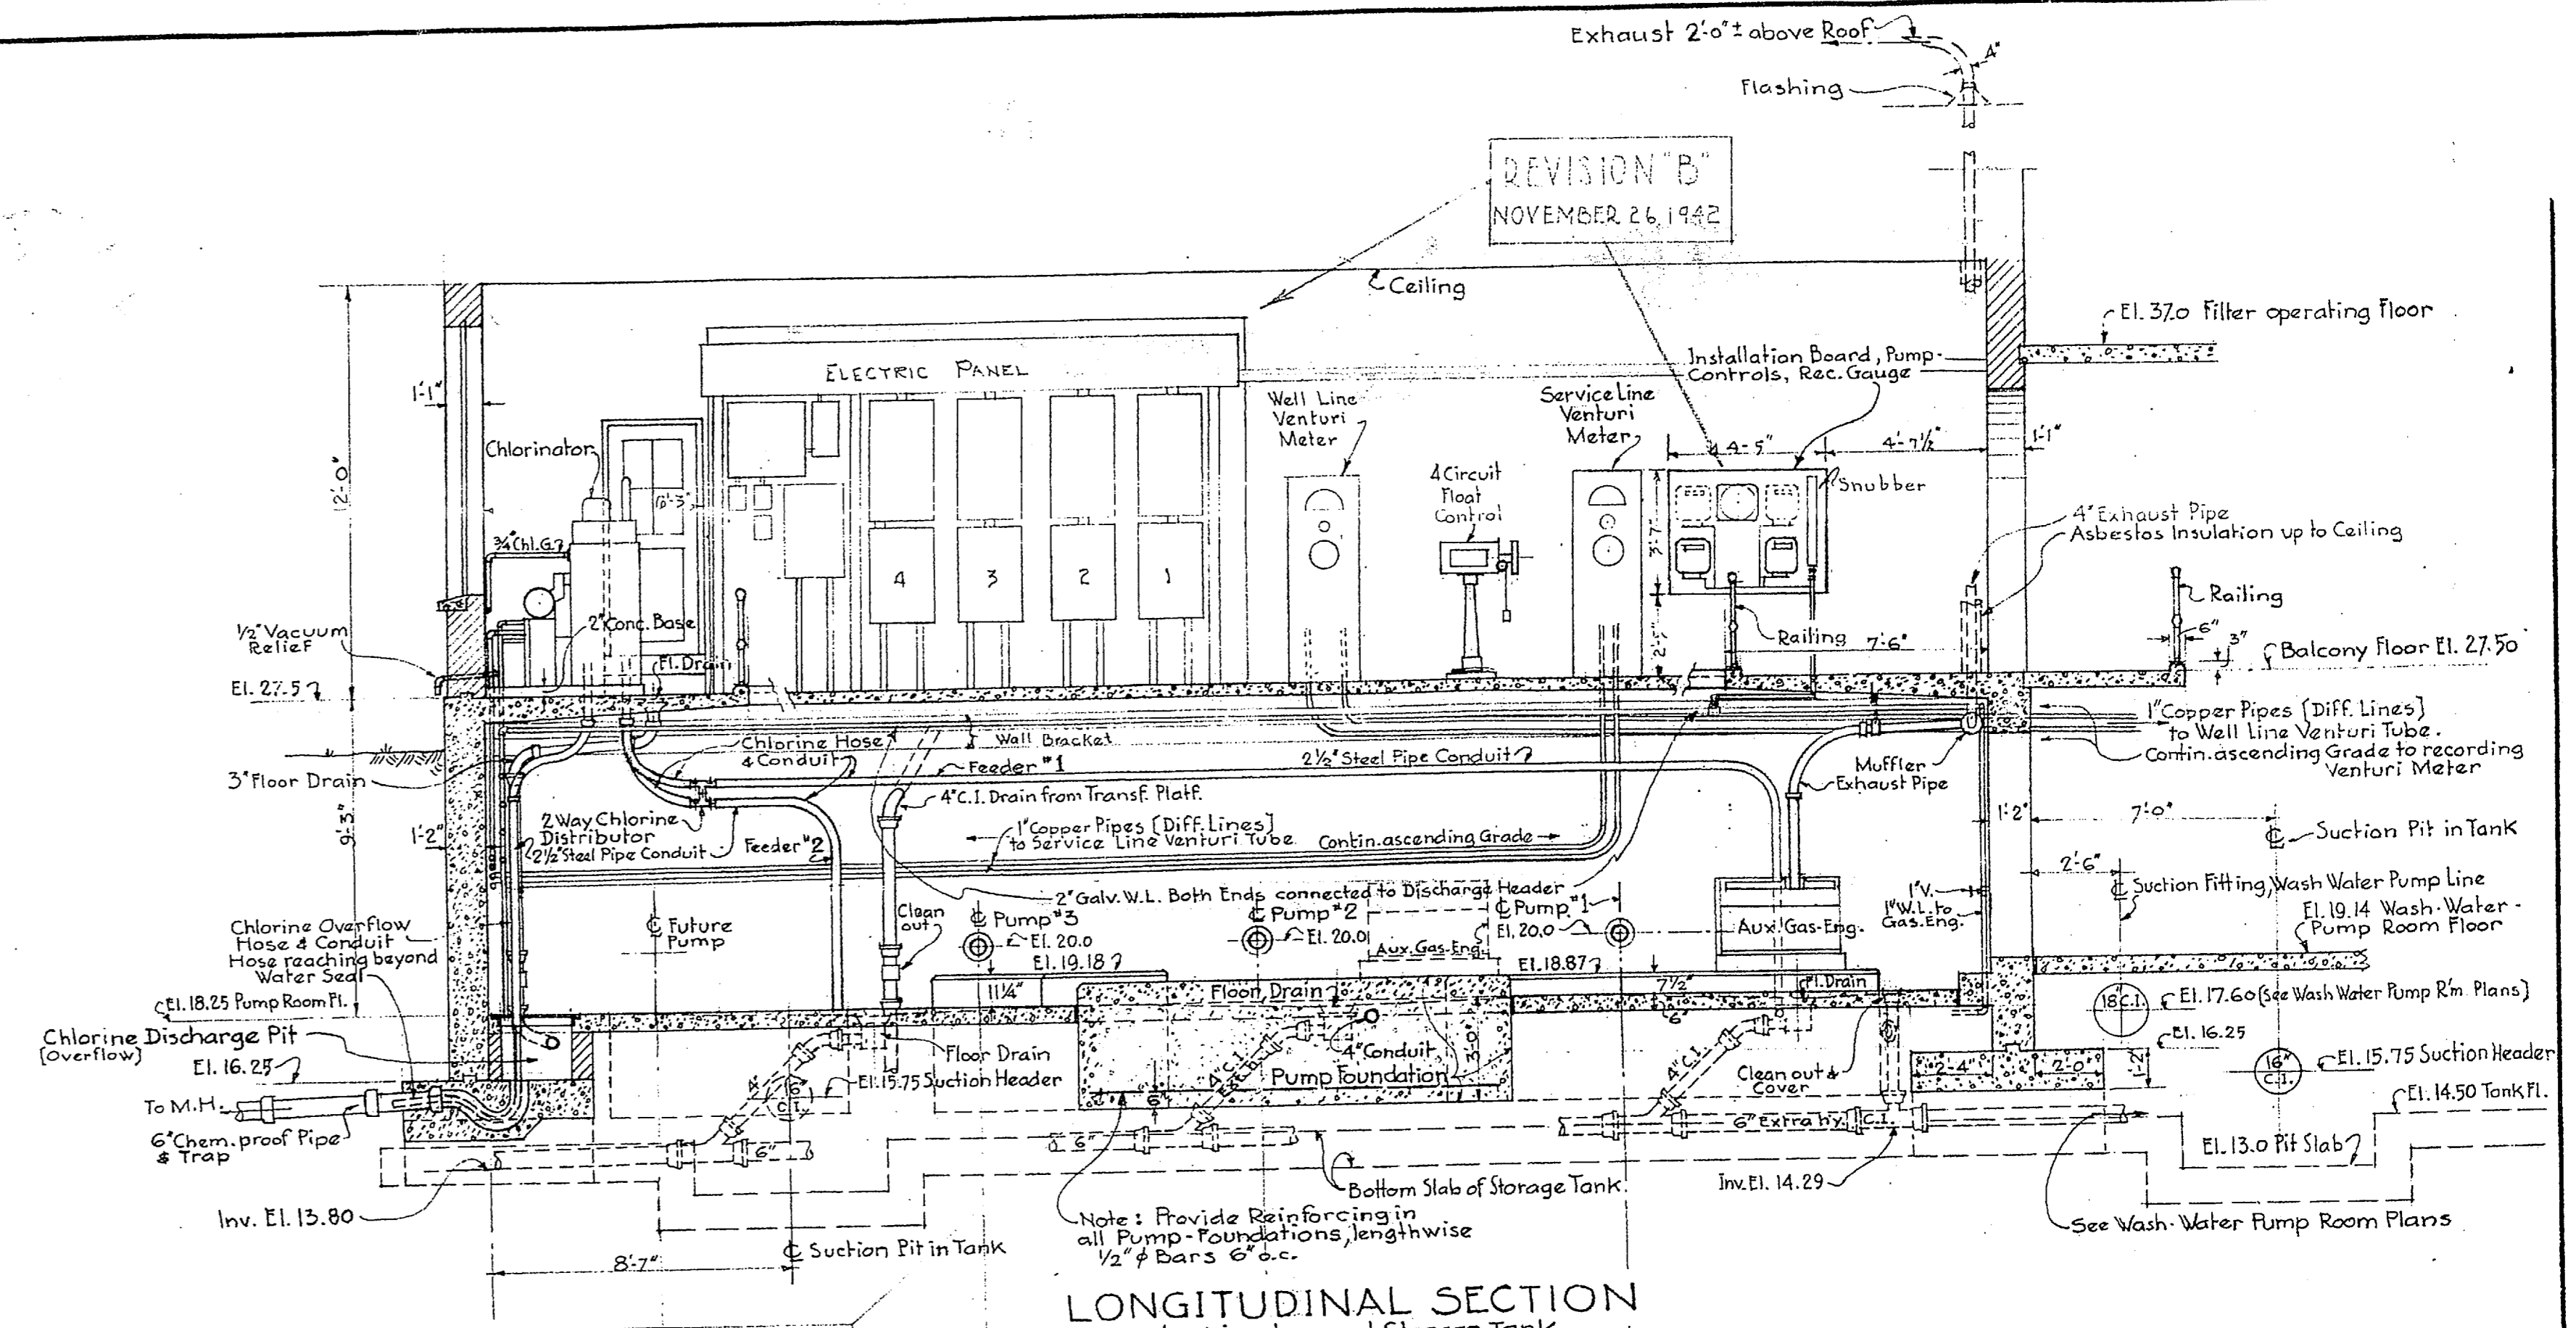 Exhaust 2'-0"± above Roof
4"
Flashing
REVISION "B"
NOVEMBER 26, 1942
Ceiling
El. 37.0 Filter operating Floor
ELECTRIC PANEL
Installation Board, Pump-
Controls, Rec. Gauge
1'-1"
Well Line
Venturi
Meter
Service Line
Venturi
Meter
4'-5"
4'-7½"
1'-1"
Chlorinator
12'-0"
6'-3"
4 Circuit
Float
Control
Snubber
3'-7"
4" Exhaust Pipe
Asbestos Insulation up to Ceiling
¾" Chl.G.
4
3
2
1
Railing
6"
3"
½" Vacuum
Relief
2" Conc. Base
Railing
7'-6"
2'-7"
Balcony Floor El. 27.50
Fl. Drain
El. 27.5
1" Copper Pipes [Diff. Lines]
to Well Line Venturi Tube.
Contin. ascending Grade to recording
Venturi Meter
Chlorine Hose
& Conduit
Wall Bracket
Feeder #1
2½" Steel Pipe Conduit
Muffler
Exhaust Pipe
3" Floor Drain
4" C.I. Drain from Transf. Platf.
9'-3"
1'-2"
2 Way Chlorine
Distributor
2½" Steel Pipe Conduit
Feeder #2
1" Copper Pipes [Diff. Lines]
to Service Line Venturi Tube.
Contin. ascending Grade
1'-2"
7'-0"
℄ Suction Pit in Tank
2'-6"
2" Galv. W.L. Both Ends connected to Discharge Header
℄ Suction Fitting, Wash Water Pump Line
El. 19.14 Wash-Water-
Pump Room Floor
Chlorine Overflow
Hose & Conduit
Hose reaching beyond
Water Seal
℄ Future
Pump
Clean
out
℄ Pump #3
El. 20.0
℄ Pump #2
El. 20.0
℄ Pump #1
El. 20.0
Aux. Gas-Eng.
Aux. Gas-Eng.
1" V.
1" W.L. to
Gas. Eng.
El. 19.18
El. 18.87
El. 18.25 Pump Room Fl.
11¼"
Floor Drain
7½"
Fl. Drain
6"
18" C.I.
El. 17.60 (See Wash Water Pump R'm. Plans)
Chlorine Discharge Pit
[Overflow]
El. 16.25
Floor Drain
El. 15.75 Suction Header
6"
C.I.
4" C.I.
4" Conduit
3'-0"
Pump Foundation
6"
4" C.I.
Clean out &
Cover
El. 16.25
2'-4"
2'-0"
1'-2"
16"
C.I.
El. 15.75 Suction Header
El. 14.50 Tank Fl.
To M.H.
6" Chem. proof Pipe
& Trap
6"
6"
6" Extra hy. C.I.
El. 13.0 Pit Slab
Bottom Slab of Storage Tank.
Inv. El. 14.29
Inv. El. 13.80
See Wash-Water Pump Room Plans
Note: Provide Reinforcing in
all Pump-Foundations, lengthwise
½" ϕ Bars 6" o.c.
℄ Suction Pit in Tank
8'-7"
LONGITUDINAL SECTION